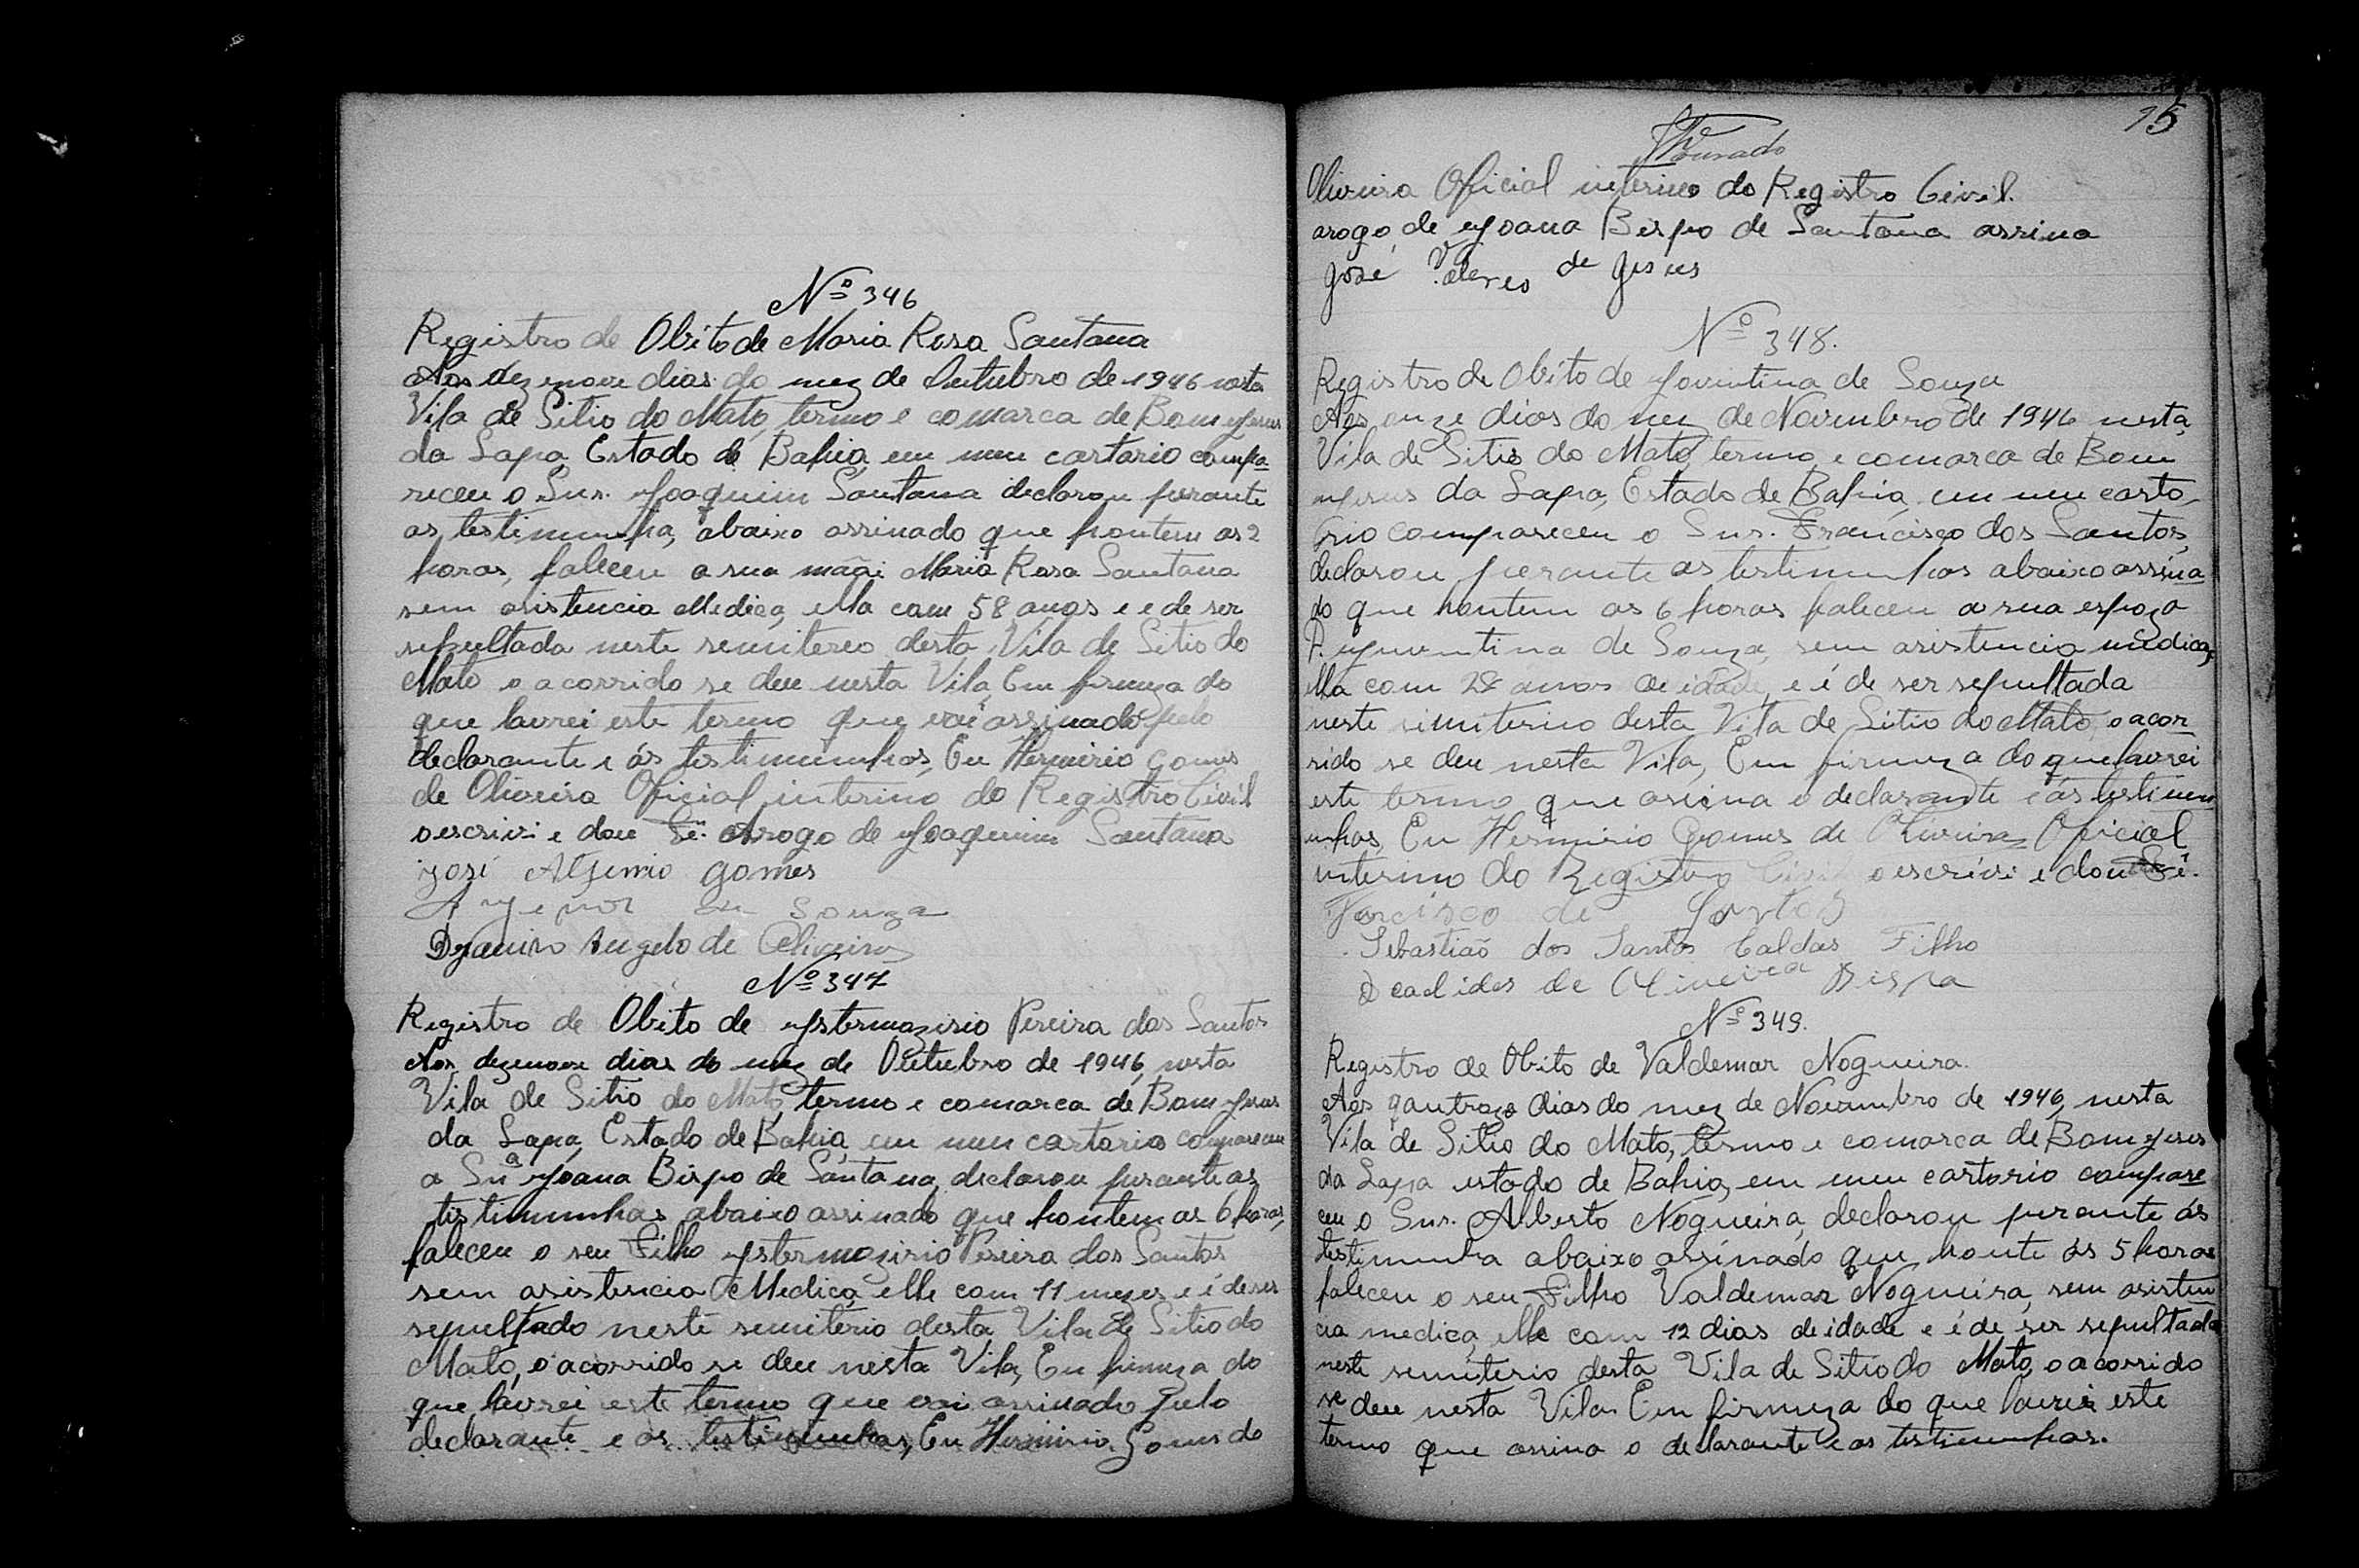 Nº 346
Registro de Obito de Maria Rosa Santana
Aos dezenove dias do mez de Outubro de 1946 nesta
Vila de Sitio do Mato, termo e comarca de Bom Jesus
da Lapa, Estado da Bahia, em meu cartorio compa
receu o Snr. Joaquim Santana declarou perante
as testimunha, abaixo assinado que hontem as 2
horas, faleceu a sua mãi Maria Rosa Santana
sem asistencia Medica, ella com 58 anos e e de ser
sepultada neste semitereo desta Vila de Sitio do
Mato o acorrido se deu nesta Vila, Em firmeza do
que lavrei este termo que vai assinado pelo
declarante e ás testimunhas, Eu Herminio Gomes
de Oliveira Oficial interino do Registro Civil
o escrivi e dou Fé. Arogo de Joaquim Santana
José Gomes
de Souza
Angelo de Oliveira
Nº 347
Registro de Obito de Pereira dos Santos
Aos dezenove dias do mez de Outubro de 1946, nesta
Vila de Sitio do Mato, termo e comarca de Bom Jesus
da Lapa, Estado de Bahia, em meu cartorio compareceu
a Snª Joana Bispo de Santana, declarou perante as
testimunhas abaixo assinado que hontem as 6 horas,
faleceu o seu Filho Pereira dos Santos
sem asistencia Medica, elle com 11 mezes e é de ser
sepultado neste semiterio desta Vila de Sitio do
Mato, o acorrido se deu nesta Vila, Em firmeza do
que lavrei este termo que vai assinado pelo
declarante e as testimunhas, Eu Herminio Gomes de
15
Oliveira Oficial interino do Registro Civil.
arogo de Joana Bispo de Santana assina
José de Jesus
Nº 348.
Registro de Obito de Joventina de Souza
Aos onze dias do mez de Novembro de 1946 nesta,
Vila de Sitio do Mato, termo e comarca de Bom
Jesus da Lapa, Estado de Bahia, em meu carto
rio compareceu o Snr. Francisco dos Santos,
declarou perante as testimunhas abaixo assina
do que hontem as 6 horas faleceu a sua espoza
D. Juventina de Souza, sem asistencia médica,
ella com 28 anos de idade, e é de ser sepultada
neste simiterio desta Vila de Sitio do Mato, o acor
rido se deu nesta Vila, Em firmeza do que lavrei
este termo que asina o declarante e ás testimu
nhas, Eu Herminio Gomes de Oliveira Oficial
interino do Registro Civil o escrivi e dou Fé.
de Santos
Sebastião dos Santos Caldas Filho
de Oliveira Bispa
Nº 349.
Registro de Obito de Valdemar Nogueira.
Aos qautroze dias do mez de Novembro de 1946, nesta
Vila de Sitio do Mato, termo e comarca de Bom Jesus
da Lapa estado de Bahia, em meu cartorio compare
ceu o Snr. Alberto Nogueira, declarou perante ás
testimunha abaixo assinado que honte ás 5 horas
faleceu o seu Filho Valdemar Nogueira, sem asisten
cia medica, elle com 12 dias de idade e é de ser sepultado
neste semiterio desta Vila de Sitio do Mato, o acorrido
se deu nesta Vila. Em firmeza do que lavrei este
termo que assina o declarante e as testimunhas.